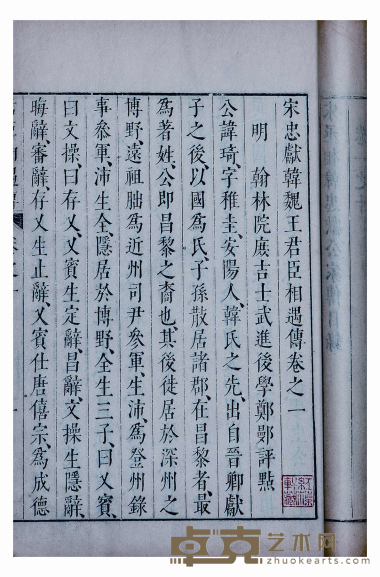 宋忠獻韓魏王君臣相遇傳卷之一
明 翰林院庶吉士武進後學鄭鄤評點
公諱琦、字稚圭、安陽人、韓氏之先、出自晉卿獻
子之後、以國為氏、子孫散居諸郡、在昌黎者、最
為著姓、公即昌黎之裔也、其後徙居於深州之
博野、遠祖胐為近州司尹參軍、生沛、為登州錄
事參軍、沛生全、隱居於博野、全生三子、曰乂賓、
曰文操、曰存乂、乂賓生定辭、昌辭、文操生隱辭、
晦辭、審辭、存乂生止辭、乂賓仕唐僖宗、為成德
卓克艺术网
www.zhuokearts.com